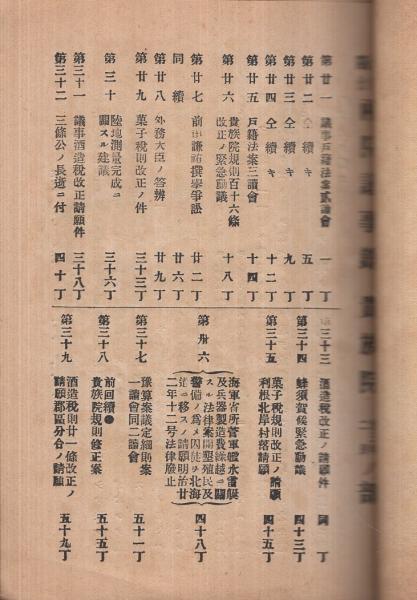 第廿一 議事戸籍法案貳讀會 一丁
第廿二 仝續キ 五丁
第廿三 仝續キ 九丁
第廿四 仝續キ 十二丁
第廿五 戸籍法案三讀會 十四丁
第廿六 貴族院規則百十六條
改正ノ緊急動議 十八丁
第廿七 前田謙祐撰擧爭訟 廿二丁
同續 廿六丁
第廿八 外務大臣ノ答辨 廿九丁
第廿九 菓子稅則改正ノ件 三十三丁
第三十 陸地測量完成ニ
關スル建議 三十六丁
第三十一 議事酒造稅改正請願件 三十八丁
第三十二 三條公ノ長逝ニ付 四十丁
第三十三 酒造稅改正ノ請願件 同丁
第三十四 蜂須賀候緊急動議 四十三丁
第三十五 菓子稅規則改正ノ請願
利根北岸村落請願 四十五丁
第卅六 海軍省所管軍艦水雷艇
及兵器製造費繰越ニ關
スル法律案開墾殖民及
警備ノ爲メ囚徒ヲ北海
道ニ移スノ請願明治廿
二年十二号法律廢止 四十八丁
第三十七 豫算案議定細則案
一讀會同二讀會 五十一丁
第三十八 前回續●
貴族院規則修正案 五十五丁
第三十九 酒造稅則廿一條改正ノ
請願郡區分合ノ請願 五十九丁